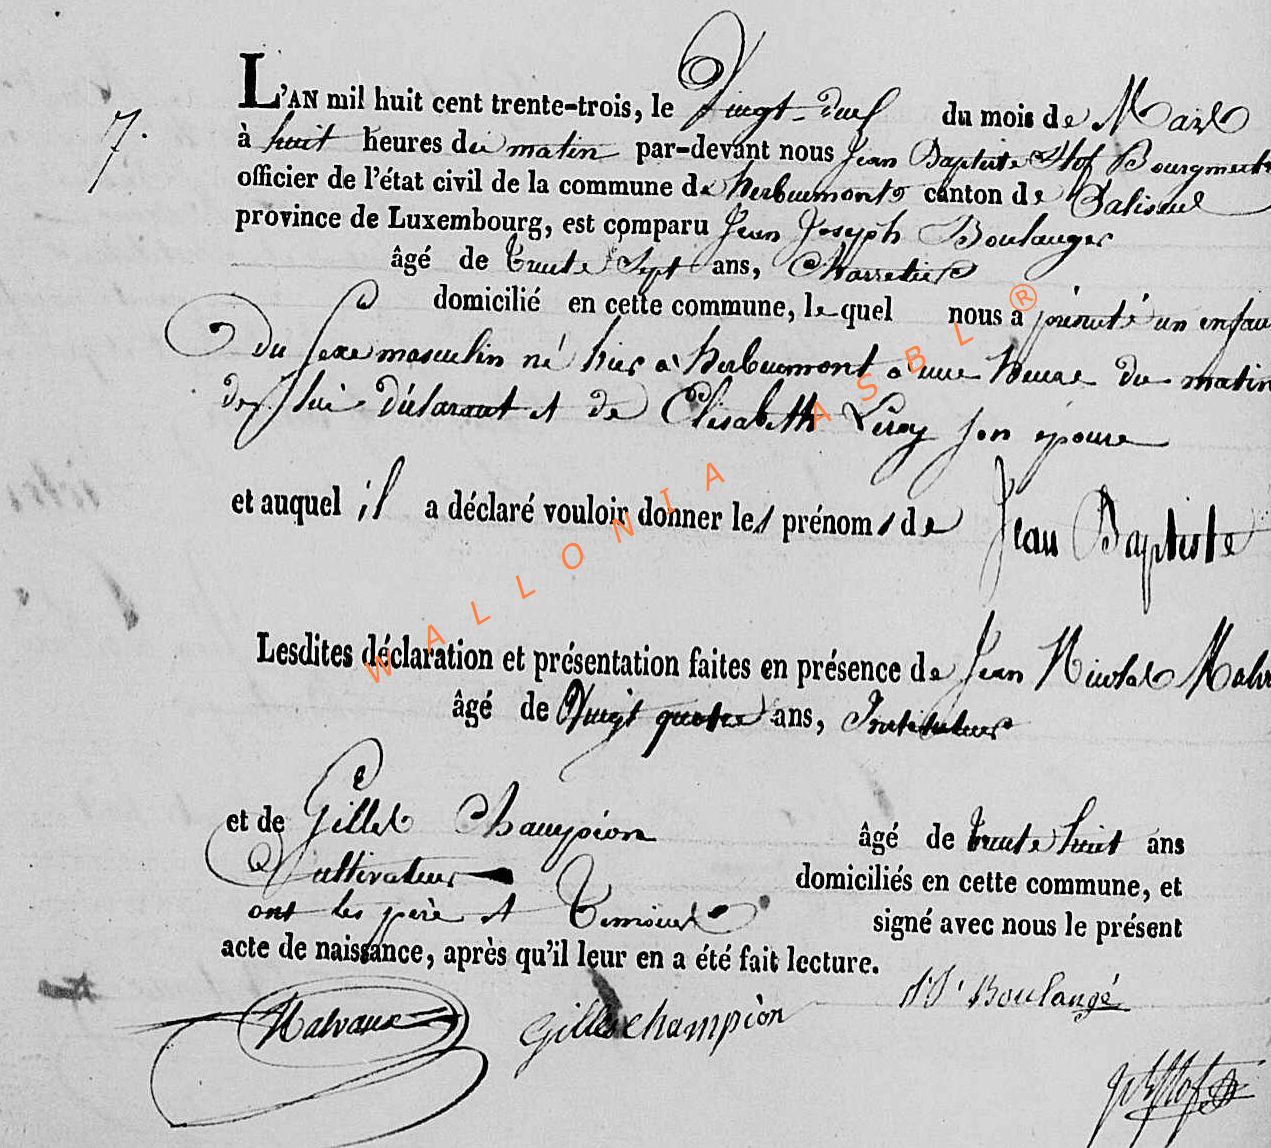 7.
L'AN mil huit cent trente-trois, le Vingt-deux du mois de Mars
à huit heures du matin par-devant nous Jean Baptiste Hof Bourgmestre
officier de l'état civil de la commune de herbeumont canton de Paliseul
province de Luxembourg, est comparu Jean Joseph Boulanger
âgé de trente Sept ans, Charretier
domicilié en cette commune, le quel nous a présenté un enfan
du sexe masculin né hier à herbeumont à une heure du matin
de lui déclarant et de Elisabeth Leroy son épouse
et auquel il a déclaré vouloir donner les prénoms de Jean Baptiste
Lesdites déclaration et présentation faites en présence de Jean Nicolas Malv
âgé de Vingt quatre ans, Instituteur
et de Gilles Champion âgé de trente huit ans
Cultivateur domiciliés en cette commune, et
ont les père et témoins signé avec nous le présent
acte de naissance, après qu'il leur en a été fait lecture.
Malvaux Gilles champion J. J. Boulangé
JB Hof
WALLONIA ASBL ®